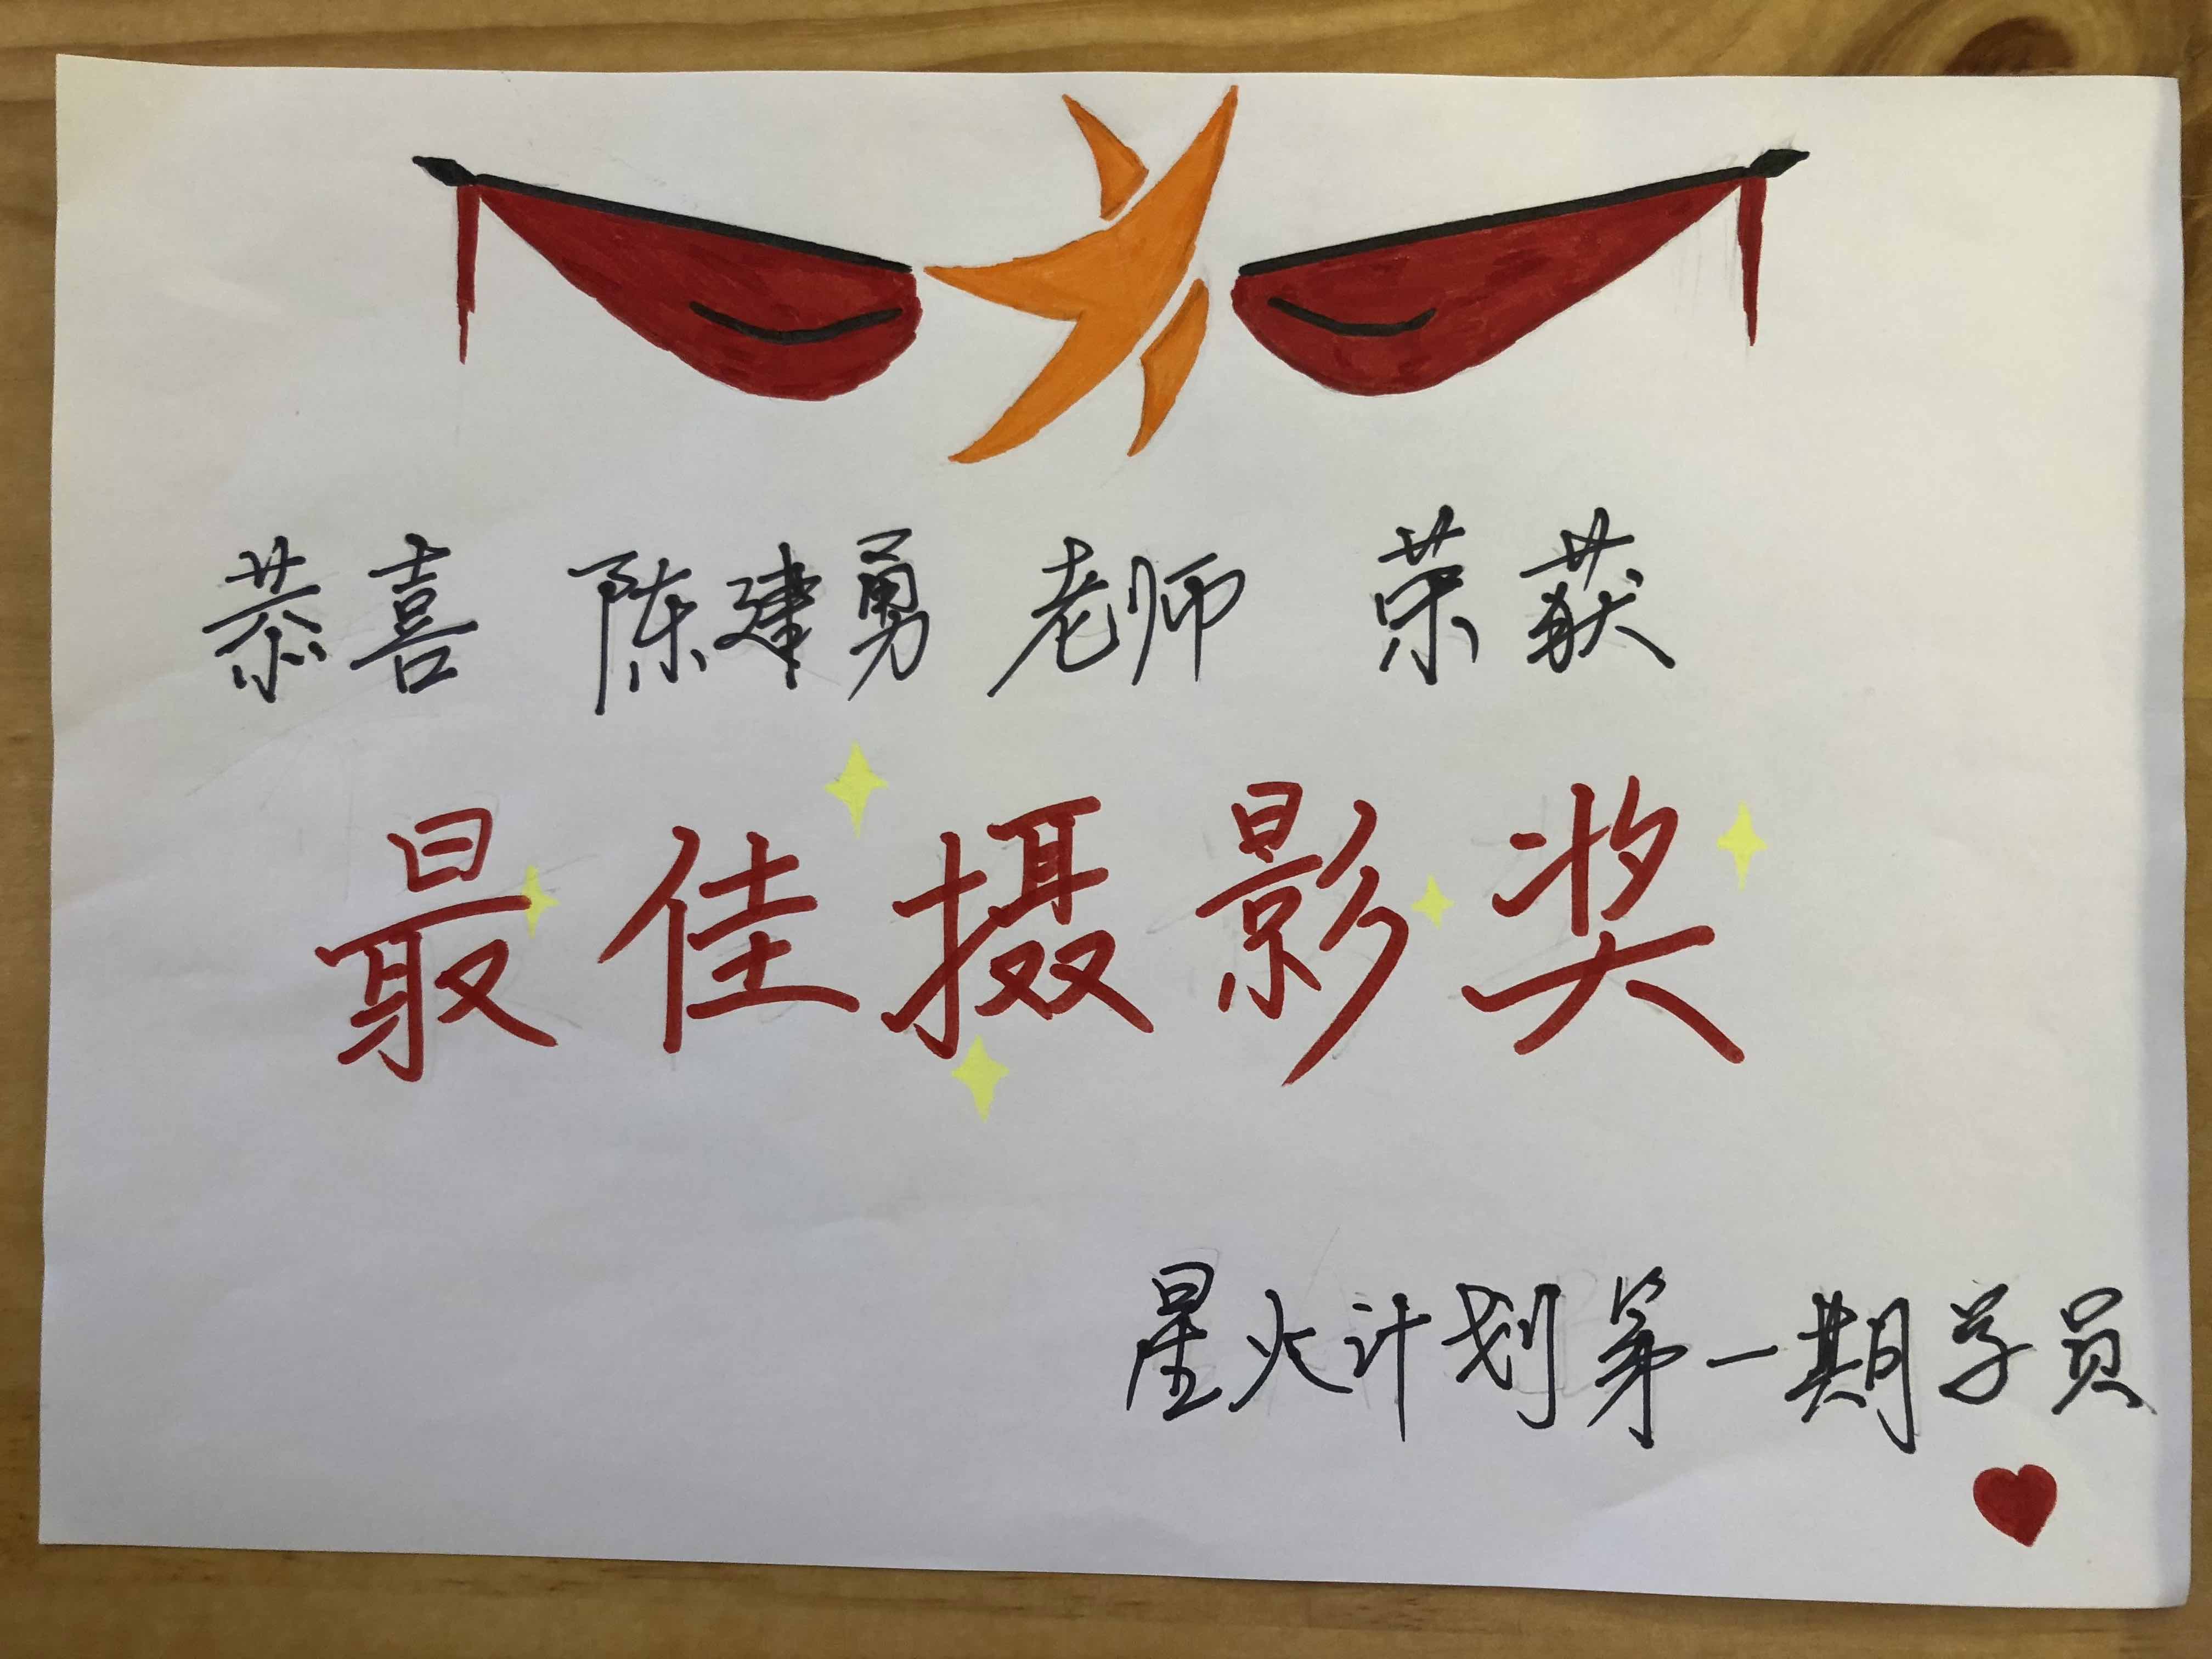 恭喜 陈建勇 老师 荣获
最佳摄影奖
星火计划第一期学员